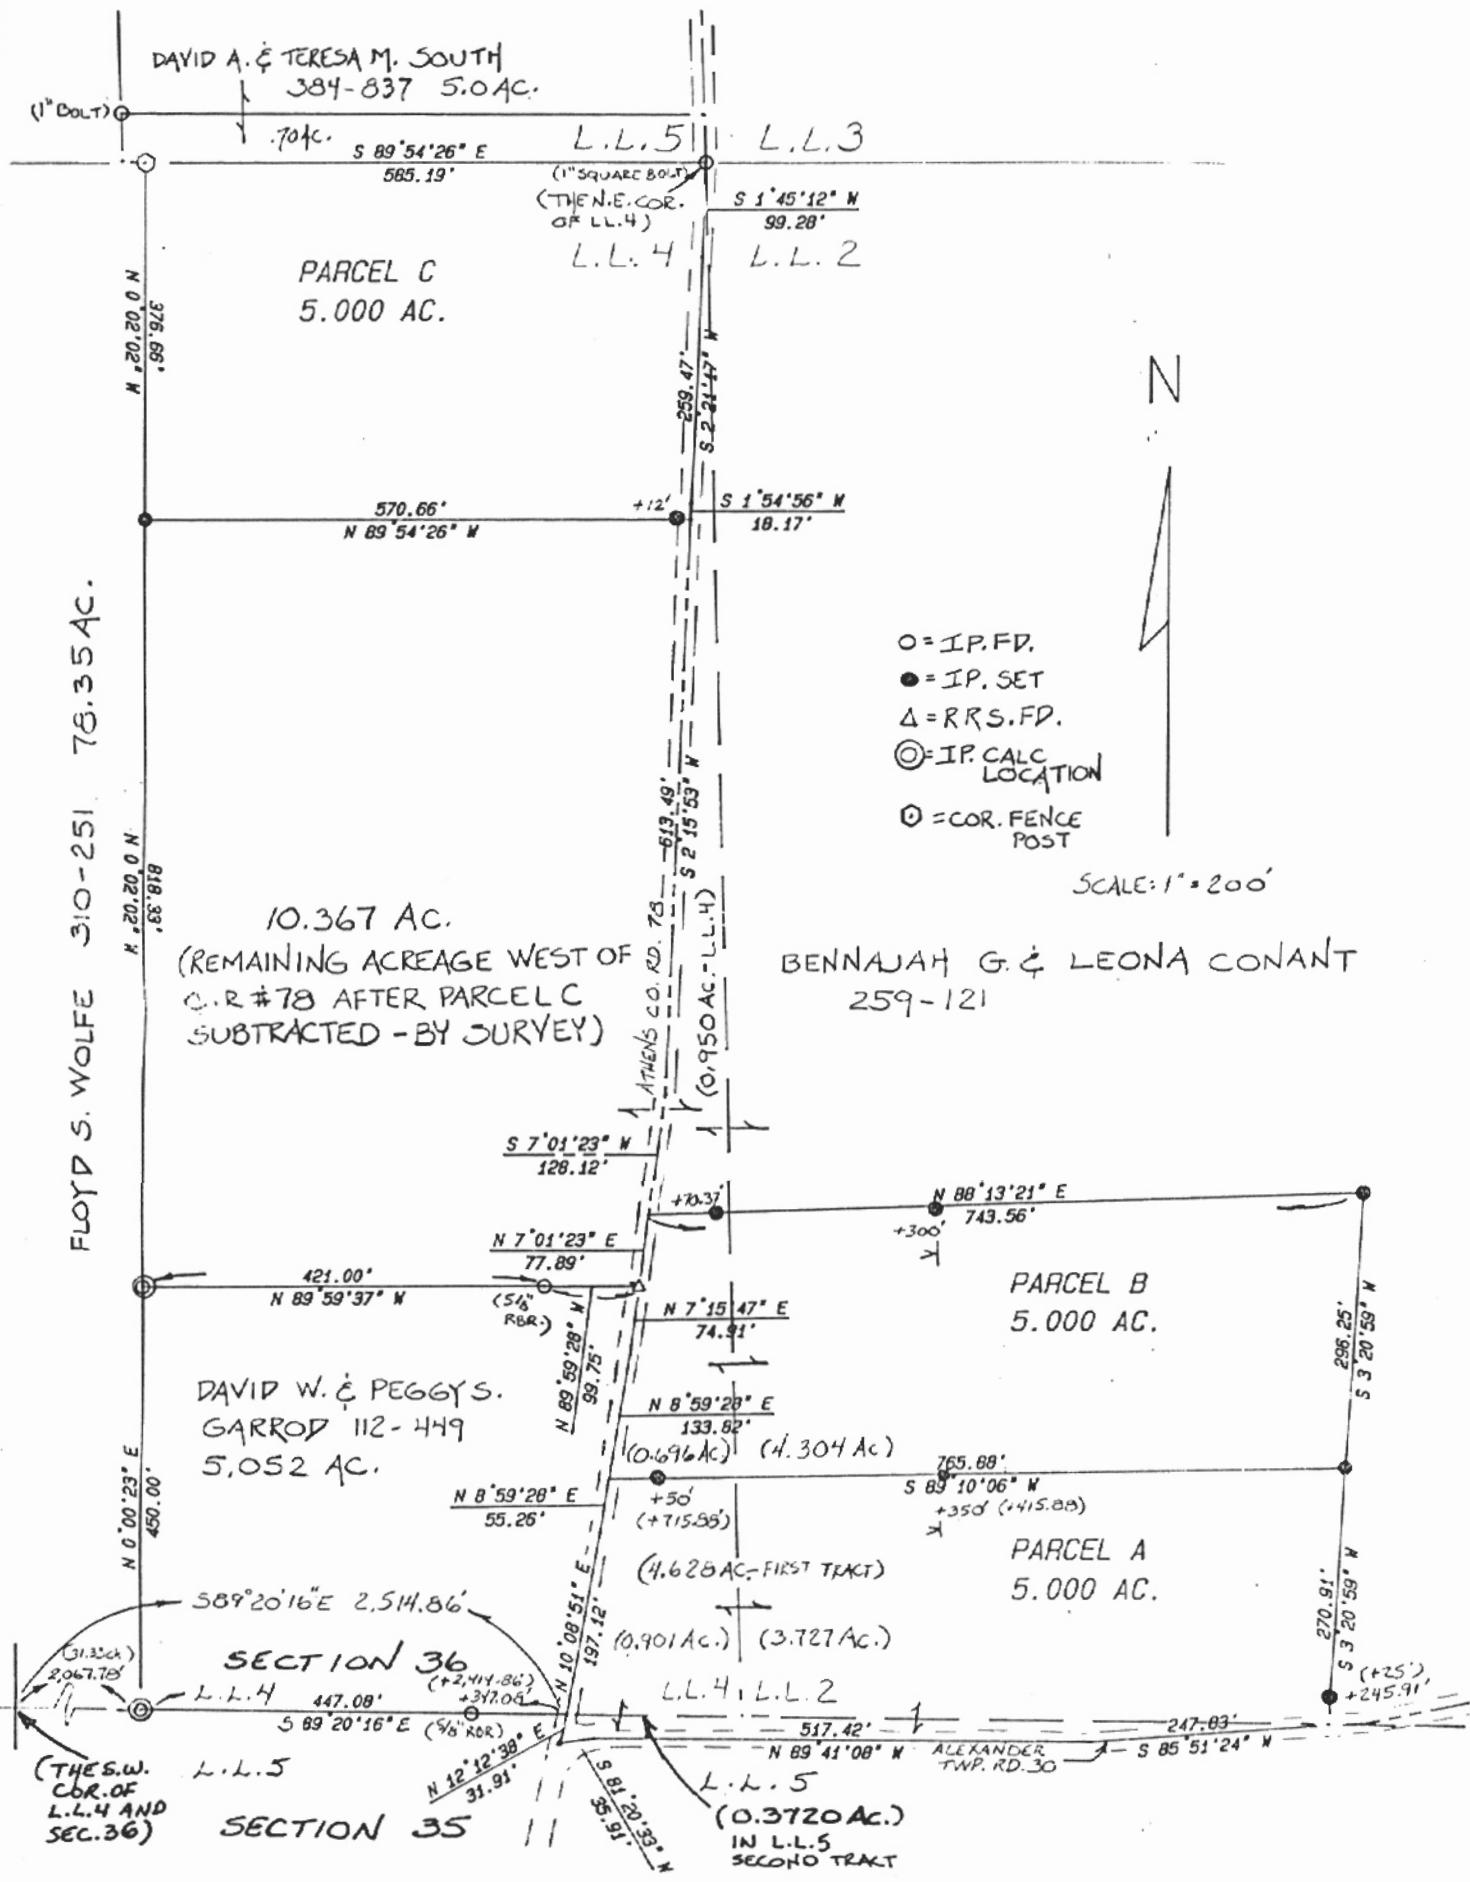 DAVID A. & TERESA M. SOUTH
384-837 5.0 AC.
(1" BOLT)
.70 AC.
S 89°54'26" E
585.19'
L.L.5
L.L.3
(1" SQUARE BOLT)
(THE N.E. COR.
OF LL.4)
S 1°45'12" W
99.28'
L.L.4
L.L.2
PARCEL C
5.000 AC.
N 0°02'02" W
376.66'
259.47'
S 2°21'17" W
N
570.66'
N 89°54'26" W
+12'
S 1°54'56" W
18.17'
O = I.P. FD.
● = I.P. SET
△ = R R S. FD.
◎ = I.P. CALC
LOCATION
= COR. FENCE
POST
SCALE: 1" = 200'
FLOYD S. WOLFE 310-251 78.35 AC.
N 0°02'02" W
818.33'
613.49'
S 2°15'53" W
ATHENS CO. RD. 78
(0.950 AC.-L.L.4)
10.367 AC.
(REMAINING ACREAGE WEST OF
C.R #78 AFTER PARCEL C
SUBTRACTED - BY SURVEY)
BENNAJAH G. & LEONA CONANT
259-121
S 7°01'23" W
128.12'
+70.37'
N 88°13'21" E
743.56'
+300'
N 7°01'23" E
77.89'
421.00'
N 89°59'37" W
(5/8"
RBR.)
N 89°59'28" W
99.75'
N 7°15'47" E
74.91'
PARCEL B
5.000 AC.
296.25'
S 3°20'59" W
DAVID W. & PEGGY S.
GARROD 112-449
5.052 AC.
N 8°59'28" E
133.82'
(0.696 Ac.) (4.304 Ac)
765.88'
S 89°10'06" W
+50'
(+715.88')
+350' (+415.88)
N 8°59'28" E
55.26'
N 0°00'23" E
450.00'
PARCEL A
5.000 AC.
(4.628 AC.-FIRST TRACT)
S89°20'16"E 2,514.86'
N 10°08'51" E
197.12'
(0.901 Ac.) (3.727 Ac.)
270.91'
S 3°20'59" W
(+25')
+245.91'
2,067.78'
SECTION 36
L.L.4
447.08'
S 89°20'16" E
(+2,414.86')
+347.08'
(5/8" RBR)
L.L.4 L.L.2
517.42'
N 89°41'08" W
ALEXANDER
TWP. RD. 30
247.83'
S 85°51'24" W
(THE S.W.
COR. OF
L.L.4 AND
SEC.36)
L.L.5
SECTION 35
N 12°12'38" E
31.91'
S 81°20'33" W
35.91'
L.L.5
(0.3720 Ac.)
IN L.L.5
SECOND TRACT